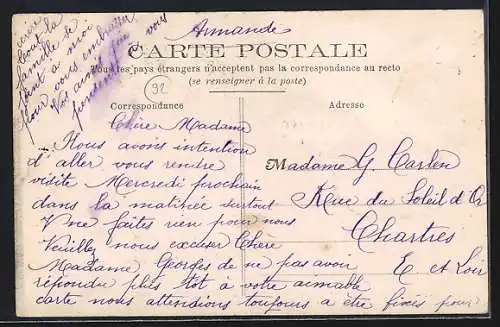 Armande
CARTE POSTALE
Tous les pays étrangers n'acceptent pas la correspondance au recto
(se renseigner à la poste)
92
Correspondance
Adresse
Chère Madame
Nous avons intention
d'aller vous rendre
visite Mercredi prochain
dans la matinée surtout
ne faites rien pour nous
Veuillez nous excuser Chère
Madame, Georges de ne pas avoir
répondu plus tôt à votre aimable
carte nous attendions toujours a être fixés pour
Madame G. Carlen
Rue du Soleil d'Or
Chartres
E. et Loir
vous
toute la
famille se
joint à moi
pour vous embrasser
Vos amis